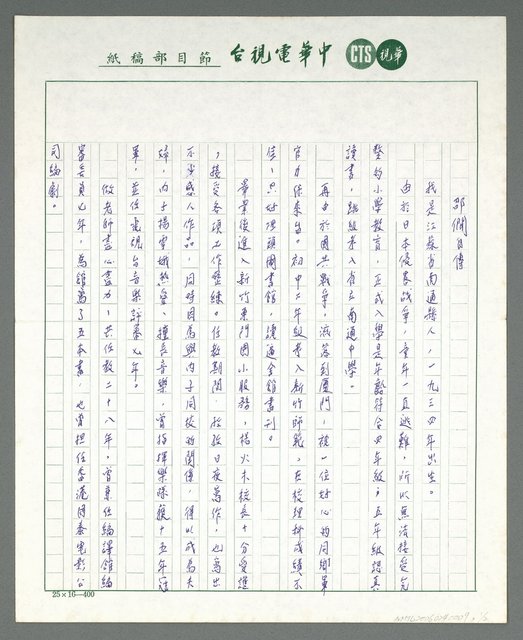 中華電視台 節目部稿紙
CTS 華視
邵僩自傳
我是江蘇省南通縣人，一九三四年出生。
由於日本侵華戰爭，童年一直逃難，所以無法接受完
整的小學教育，正式入學是年齡符合四年級，五年級認真
讀書，跳級考入省立南通中學。
再由於國共戰爭，流落到廈門，被一位好心的同鄉軍
官力保來台。初中二年級考入新竹師範，在校理科成績不
佳，只好埋頭圖書館，讀遍全館書刊。
畢業後進入新竹東門國小服務，楊火木校長十分愛護
，接受各項工作磨練。任教期間，於假日夜寫作，也寫出
不少感人作品，同時因為與內子同校的關係，得以成為夫
婦，內子楊雪娥熱愛、擅長音樂，曾指揮樂隊獲十五年冠
軍，並任電視台音樂評審七年。
做老師盡心盡力，共任教二十八年。曾兼任編譯館編
審委員七年，為館寫了五本書，也曾担任香港國泰電影公
司編劇。
25×16—400